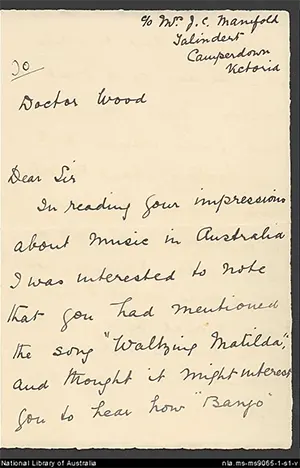 c/o Mrs J. C. Manifold
Talindert
Camperdown
Victoria
To
Doctor Wood
Dear Sir
In reading your impressions
about music in Australia
I was interested to note
that you had mentioned
the song "Waltzing Matilda",
and thought it might interest
you to hear how "Banjo"
National Library of Australia
nla.ms-ms9065-1-s1-v